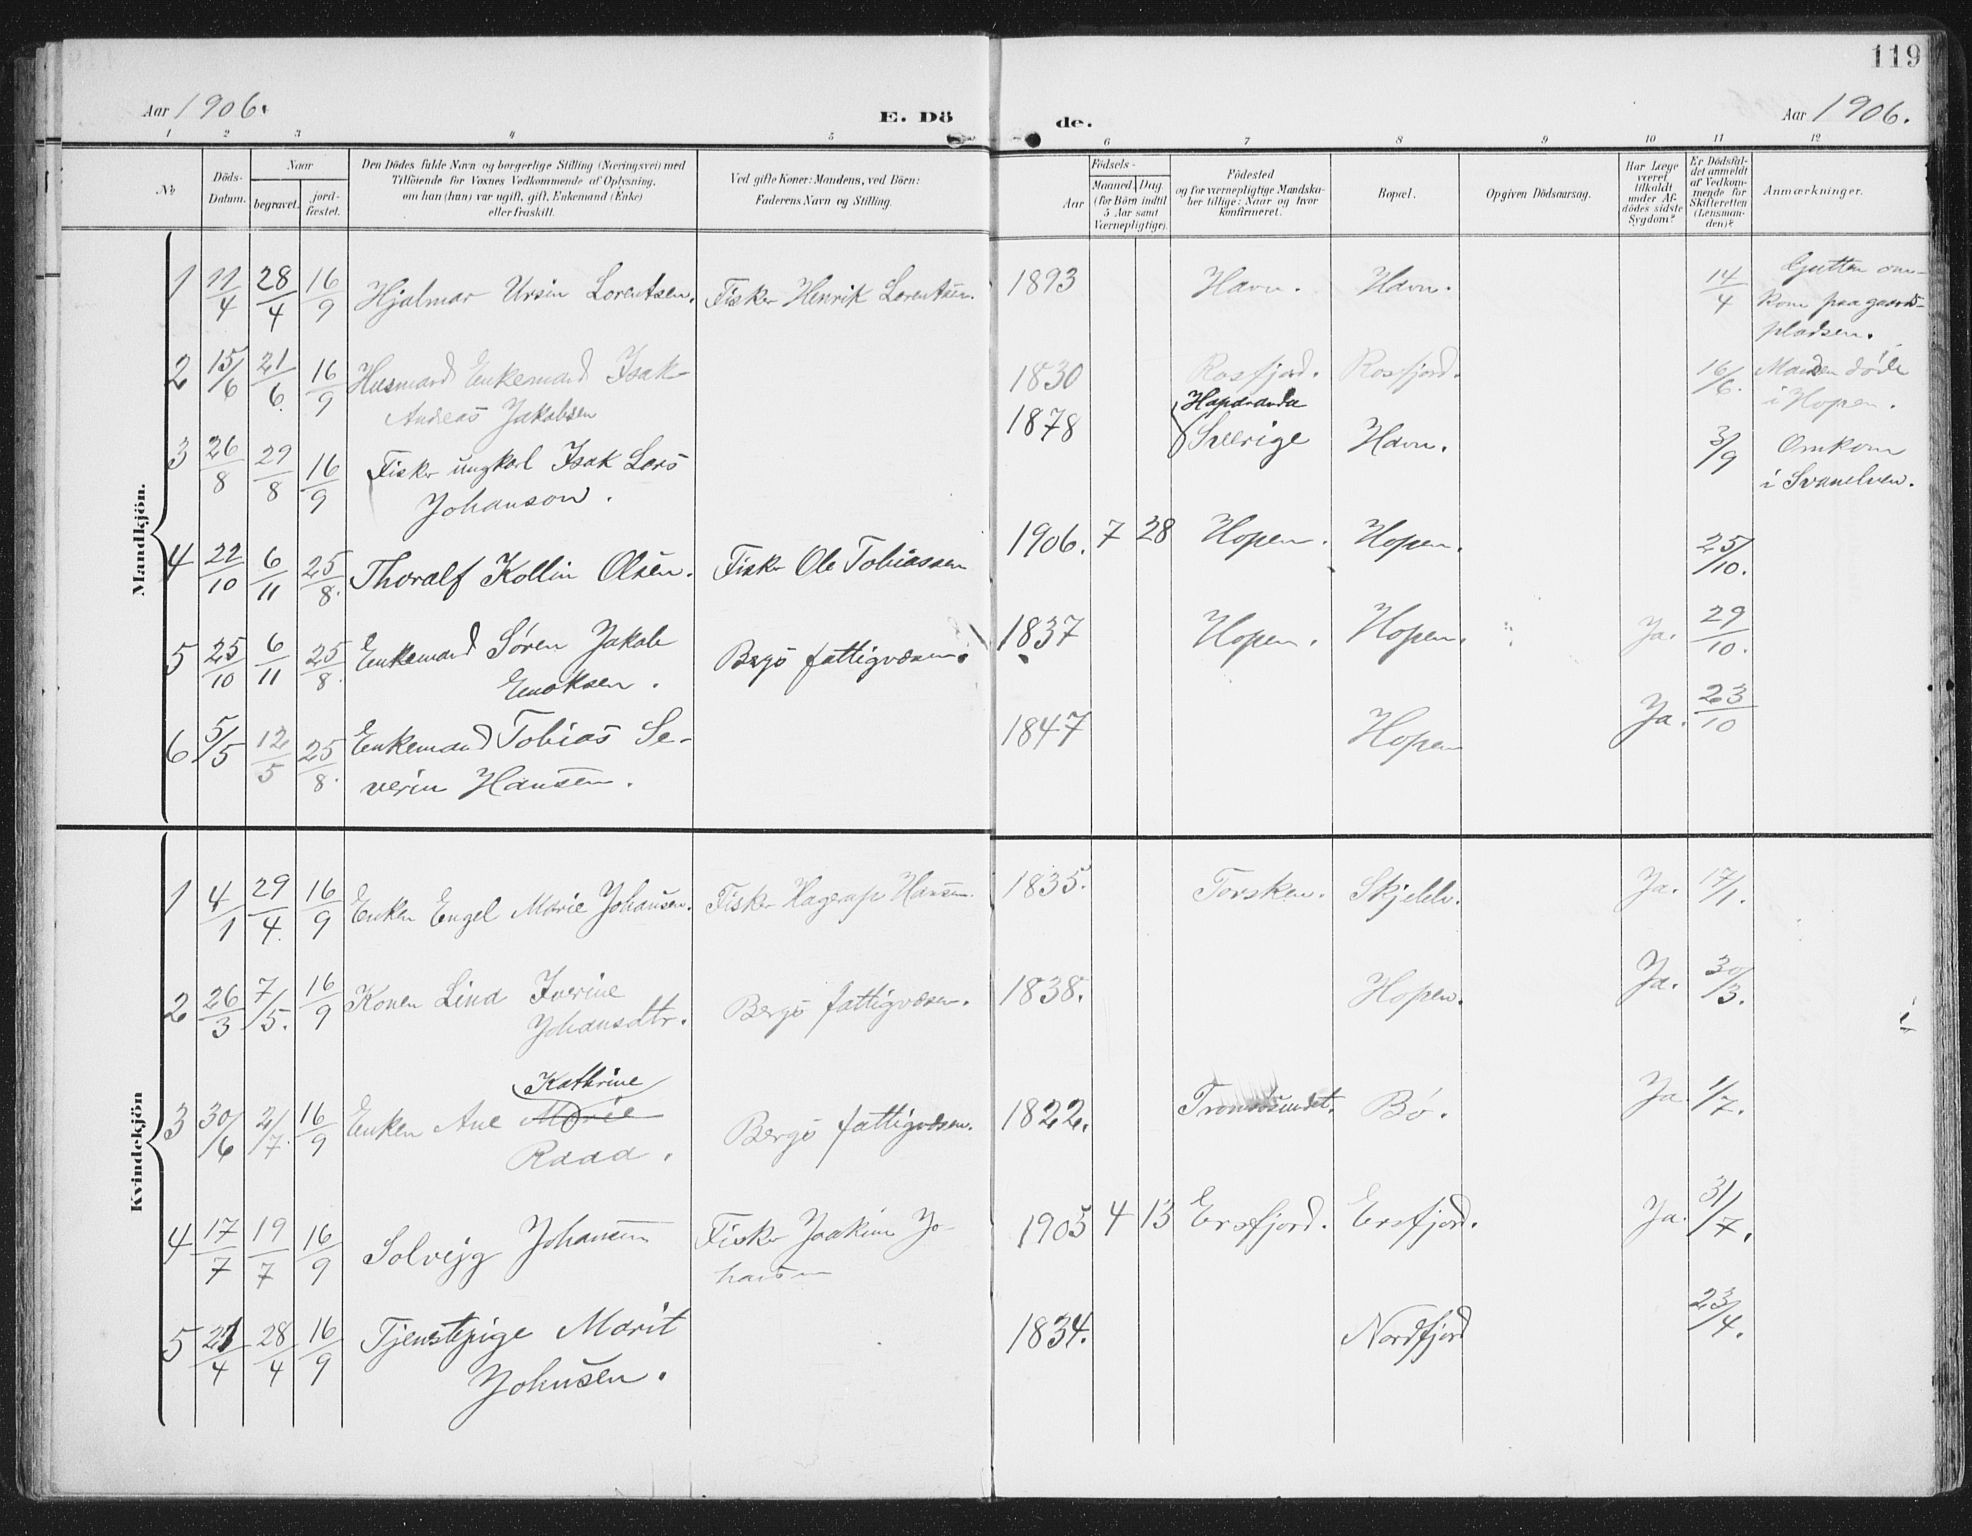 119
Aar 1906. E. Dö de. Aar 1906.
1 2 3 4 5 6 7 8 9 10 11 12
№ Döds-Datum. Naar begravet. jordfæstet.
Den Dödes fulde Navn og borgerlige Stilling (Næringsvei) med
Tilföiende for Voxnes Vedkommende af Oplysning,
om han (hun) var ugift, gift, Enkemand (Enke)
eller fraskilt.
Ved gifte Koner: Mandens, ved Börn:
Faderens Navn og Stilling.
Födsels-
Aar Maaned. Dag.
(for Börn indtil
5 Aar samt
Værnepligtige).
Födested
og for værnepligtige Mandskaber
tillige: Naar og hvor
konfirmeret.
Bopæl.
Opgiven Dödsaarsag.
Har Læge
været
tilkaldt
under Afdödes
sidste
Sygdom?
Er Dödsfaldet
anmeldt
af Vedkommende
for
Skifteretten
(Lensmanden)?
Anmærkninger.
Mandkjön.
1 11/4 28/4 16/9 Hjalmar Ursin Lorentsen. Fisker Henrik Lorentsen. 1893 Havn. Havn. 14/4 Gutten om-
kom paa gaards-
pladsen.
2 15/6 21/6 16/9 Husmand Enkemand Isak 1830 Rosfjord. Rosfjord. 16/6. Manden döde
Andreas Jakobsen i Hopen.
3 26/8 29/8 16/9 Fisker ungkarl Isak Lars 1878 Haparanda Sverige Havn. 3/9 Omkom
Johanson. i Svanelven.
4 22/10 6/11 25/8. Thoralf Kollin Olsen. Fisker Ole Tobiassen 1906. 7 28 Hopen. Hopen. 25/10.
5 25/10 6/11 25/8. Enkemand Søren Jakob Bergs fattigvæsen. 1837 Hopen. Hopen. Ja. 29/10.
Enoksen.
6 5/5 12/5 25/8. Enkemand Tobias Se- 1847 Hopen Ja. 23/10
verin Hansen.
Kvindekjön
1 4/1 29/4. 16/9 Enken Engel Marie Johansen. Fisker Hagerup Hansen. 1835. Torsken. Skjelv. Ja. 17/1.
2 26/3 7/5. 16/9 Konen Lina Iverine Bergs fattigvæsen. 1838. Hopen. Ja. 30/3.
Johansdtr.
Kathrine
3 30/6 2/7. 16/9 Enken Ane Marie Bergs fattigvæsen. 1822. Tromsösundet. Bö. Ja 1/7.
Raaa.
4 17/7 19/7 16/9 Solveig Johansen Fisker Joakim Jo- 1905 4 13 Ersfjord. Ersfjord. Ja. 31/7.
hansen
5 21/4 28/4 16/9 Tjenstepige Marit 1834. Nordfjord 23/4.
Johnsen.